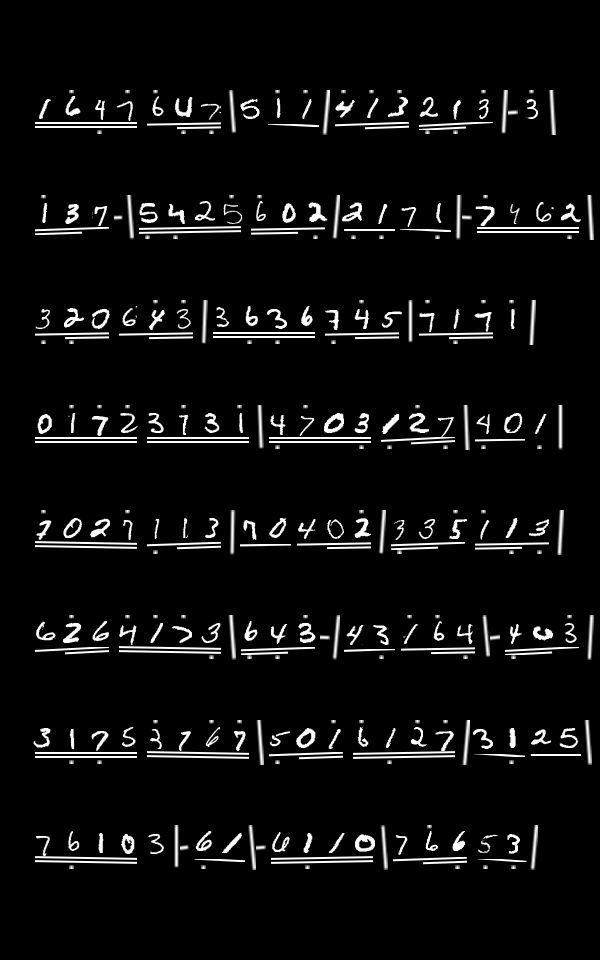 1 6 4 7 6 4 7 | 5 1 1 | 4 1 3 2 1 3 | - 3 |
1 3 7 - | 5 4 2 5 6 0 2 | 2 1 7 1 | - 7 4 6 2 |
3 2 0 6 4 3 | 3 6 3 6 7 4 5 | 7 1 7 1 |
0 1 7 2 3 1 3 1 | 4 7 0 3 1 2 7 | 4 0 1 |
7 0 2 7 1 1 3 | 7 0 4 0 2 | 3 3 5 1 1 3 |
6 2 6 4 1 7 3 | 6 4 3 - | 4 3 1 6 4 | - 4 0 3 |
3 1 7 5 3 7 6 7 | 5 0 1 6 1 2 7 | 3 1 2 5 |
7 6 1 0 3 | - 6 1 | - 6 1 1 0 | 7 6 6 5 3 |